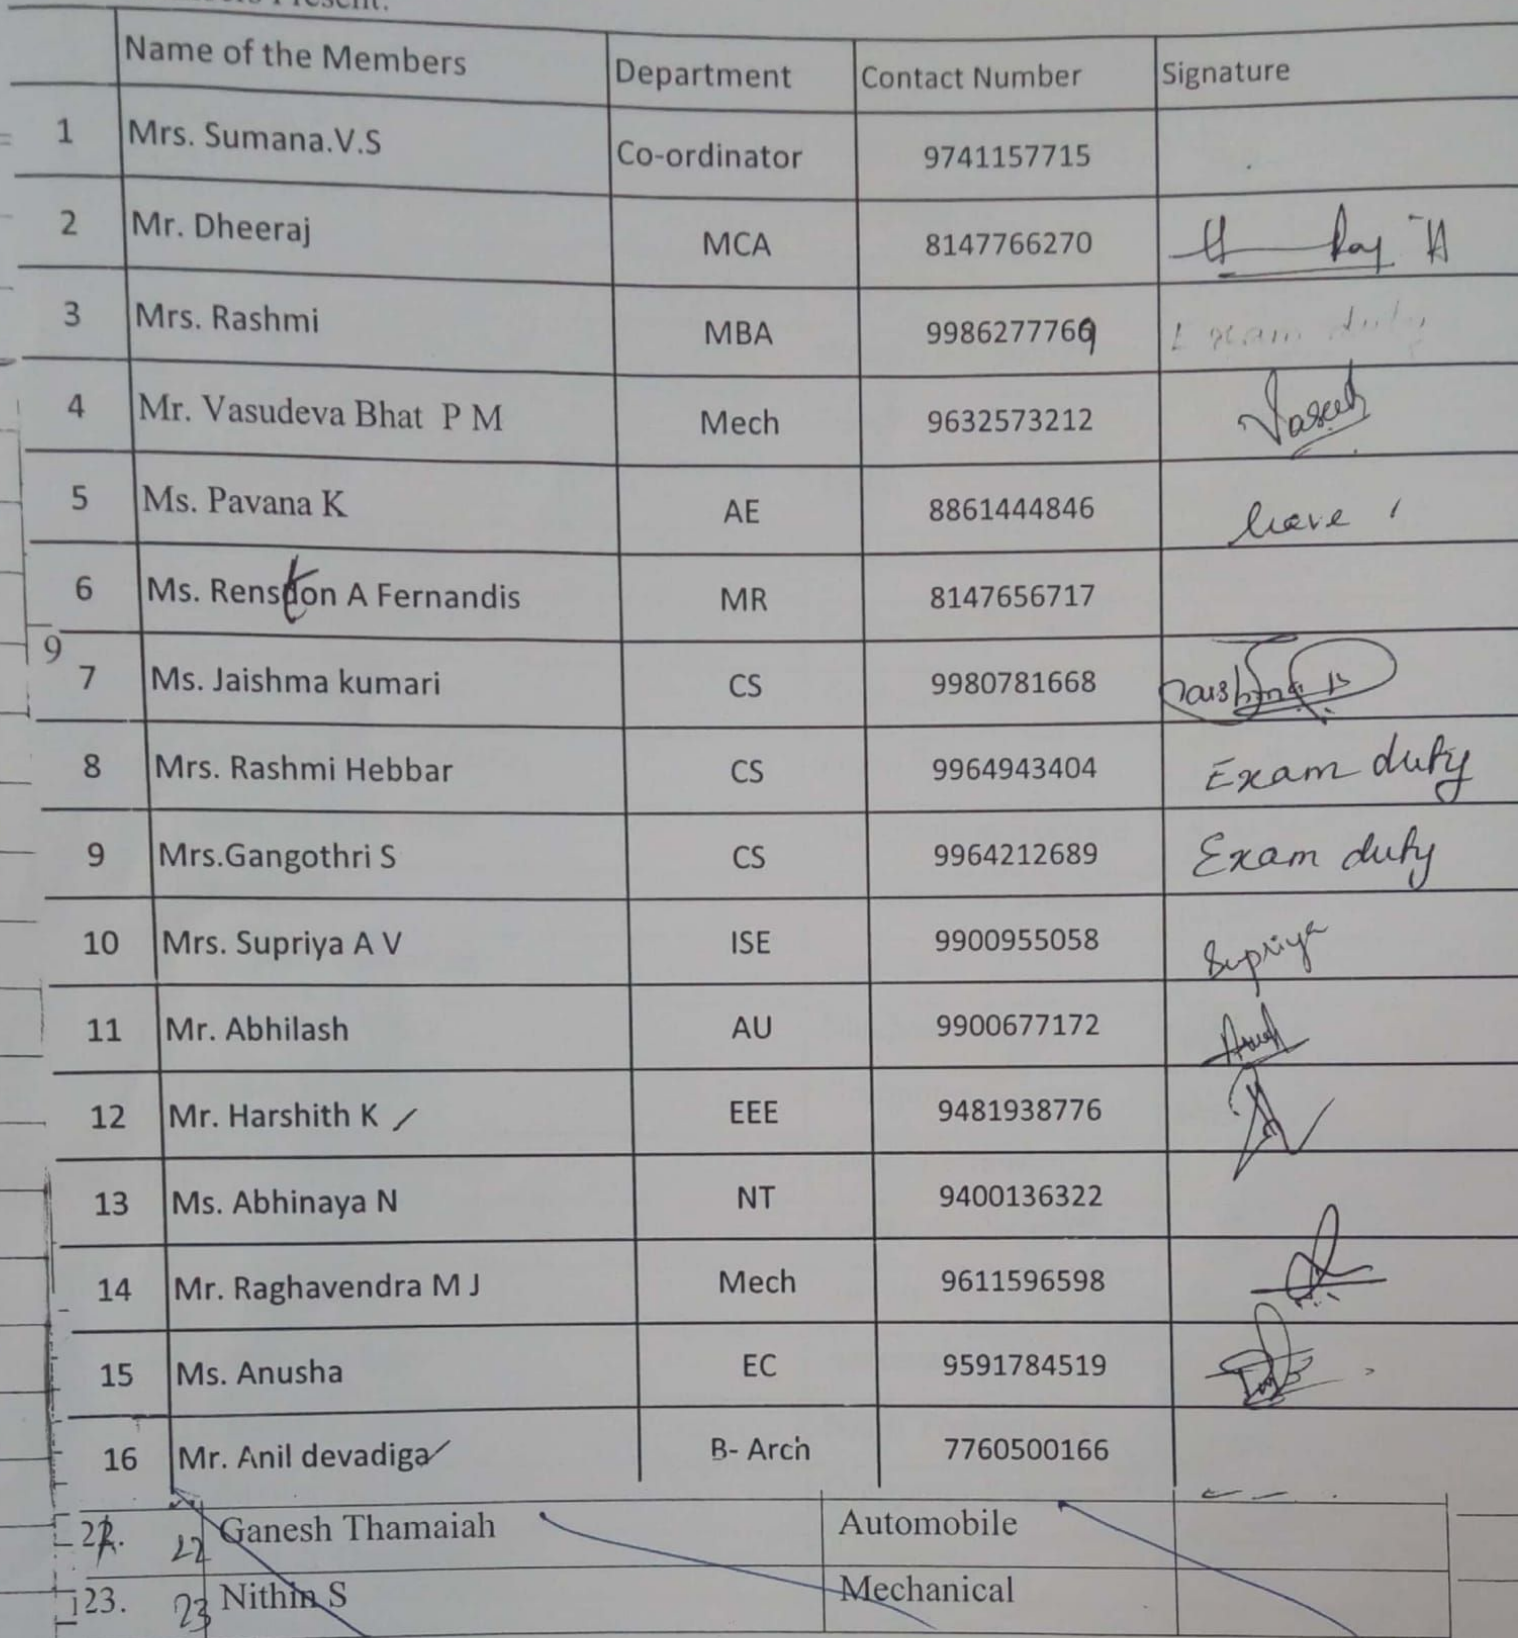 Present:
Name of the Members Department Contact Number Signature
1 Mrs. Sumana.V.S Co-ordinator 9741157715
2 Mr. Dheeraj MCA 8147766270
3 Mrs. Rashmi MBA 9986277769 Exam duty
4 Mr. Vasudeva Bhat P M Mech 9632573212
5 Ms. Pavana K AE 8861444846 leave
6 Ms. Renston A Fernandis MR 8147656717
9
7 Ms. Jaishma kumari CS 9980781668
8 Mrs. Rashmi Hebbar CS 9964943404 Exam duty
9 Mrs.Gangothri S CS 9964212689 Exam duty
10 Mrs. Supriya A V ISE 9900955058 Supriya
11 Mr. Abhilash AU 9900677172
12 Mr. Harshith K EEE 9481938776
13 Ms. Abhinaya N NT 9400136322
14 Mr. Raghavendra M J Mech 9611596598
15 Ms. Anusha EC 9591784519
16 Mr. Anil devadiga B- Arch 7760500166
22 Ganesh Thamaiah Automobile
23. 23 Nithin S Mechanical